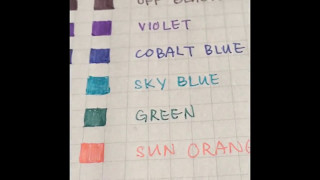 OFF BLACK
VIOLET
COBALT BLUE
SKY BLUE
GREEN
SUN ORANG